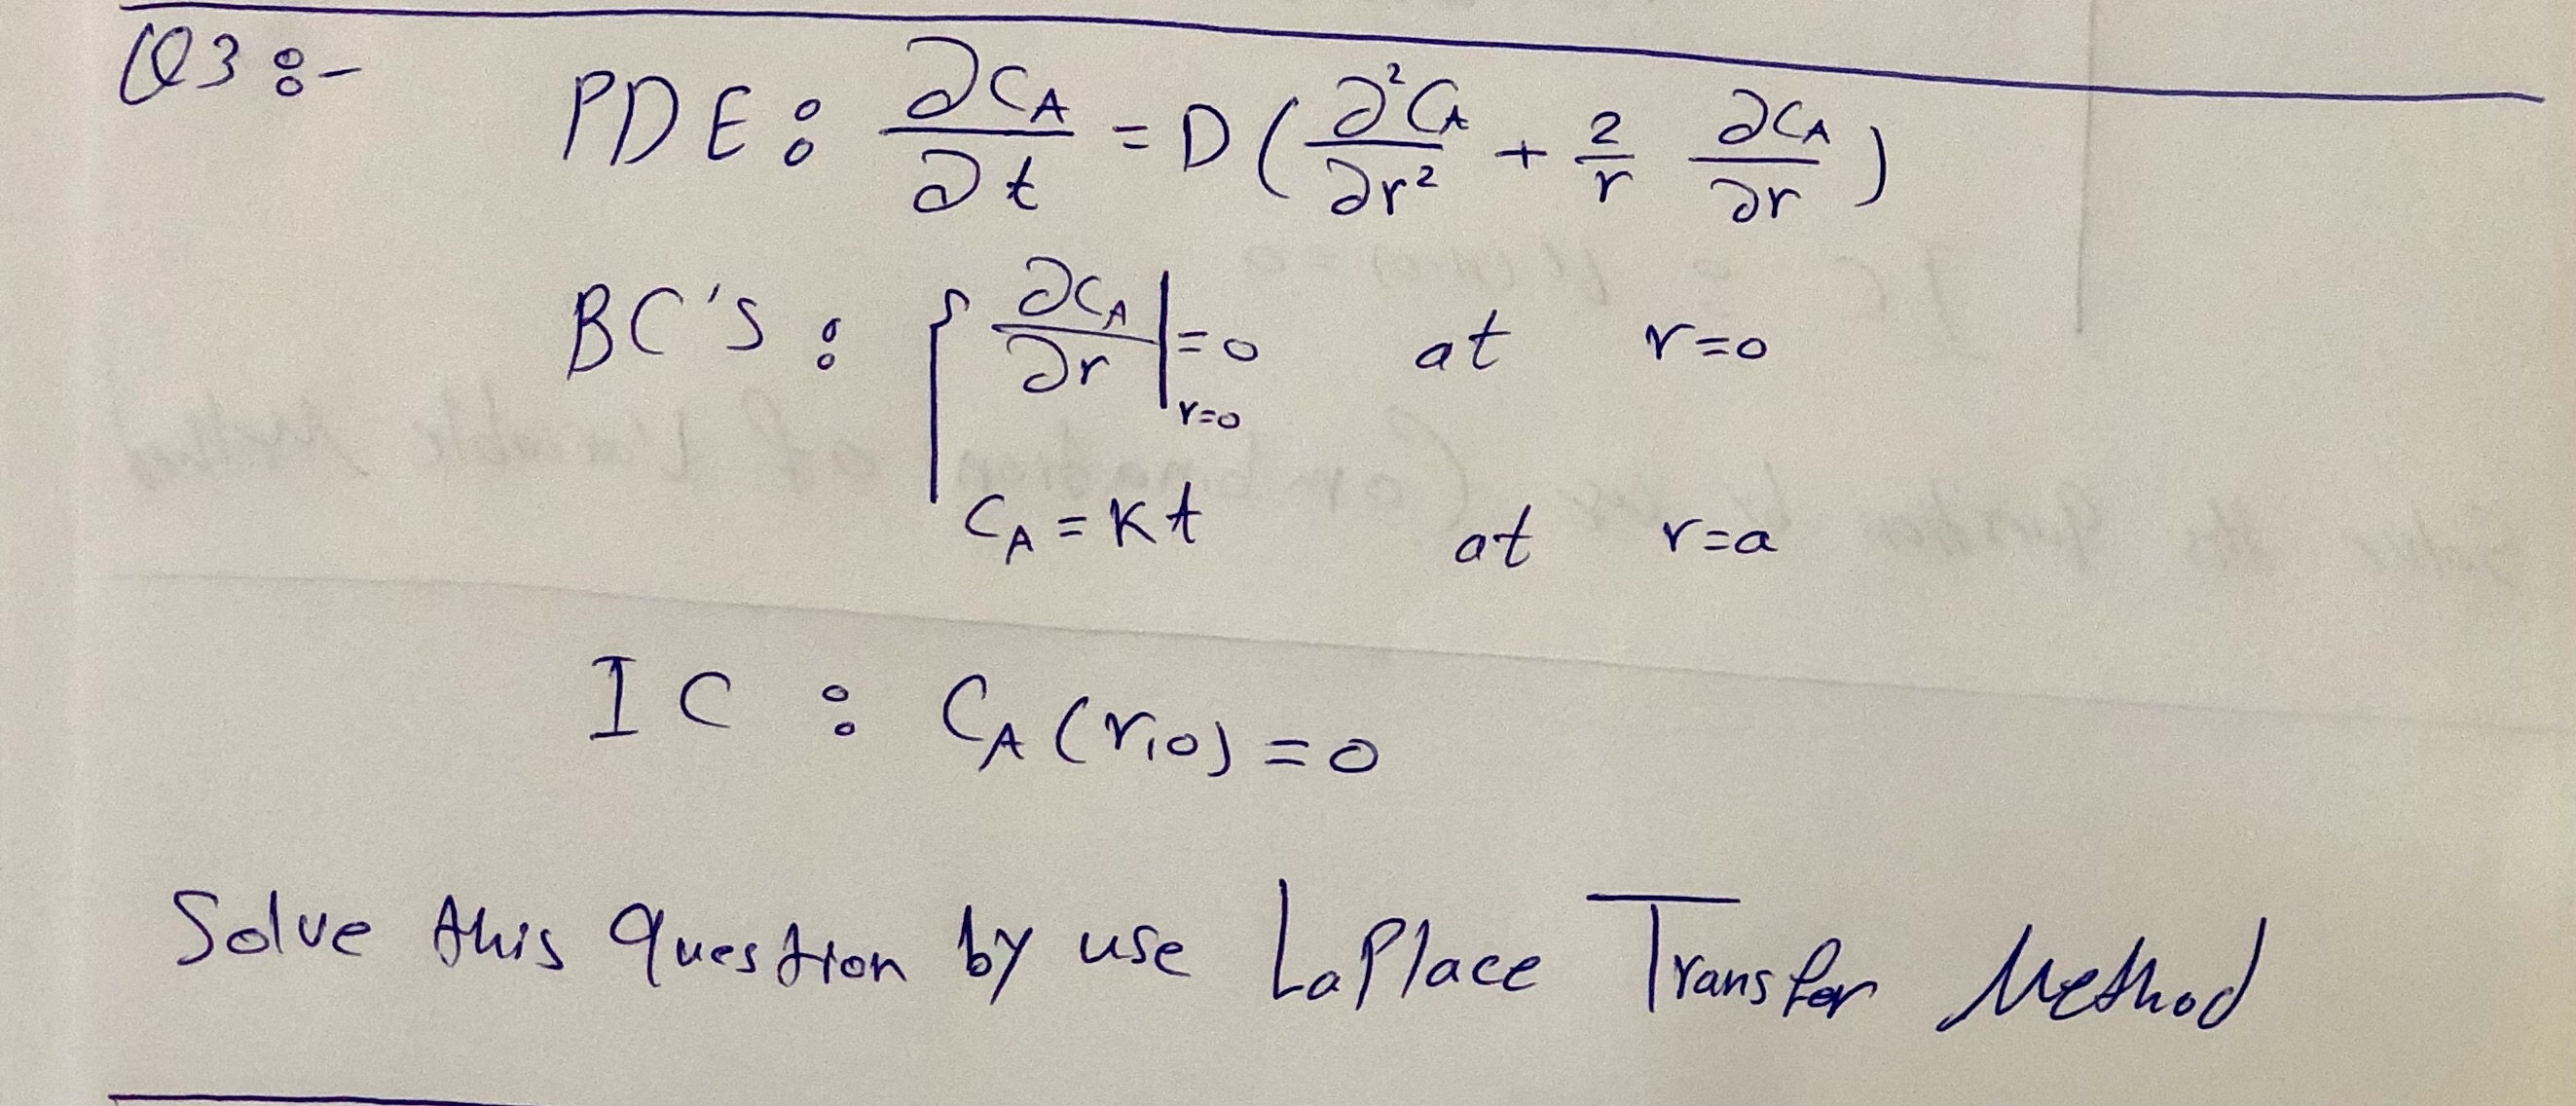 Q3 :-
PDE : ∂C_A/∂t = D ( ∂²C_A/∂r² + 2/r ∂C_A/∂r )
BC's : { ∂C_A/∂r |_{r=0} = 0 at r=0
C_A = Kt at r=a
IC : C_A(r,0) = 0
Solve this question by use LaPlace Transfer Method